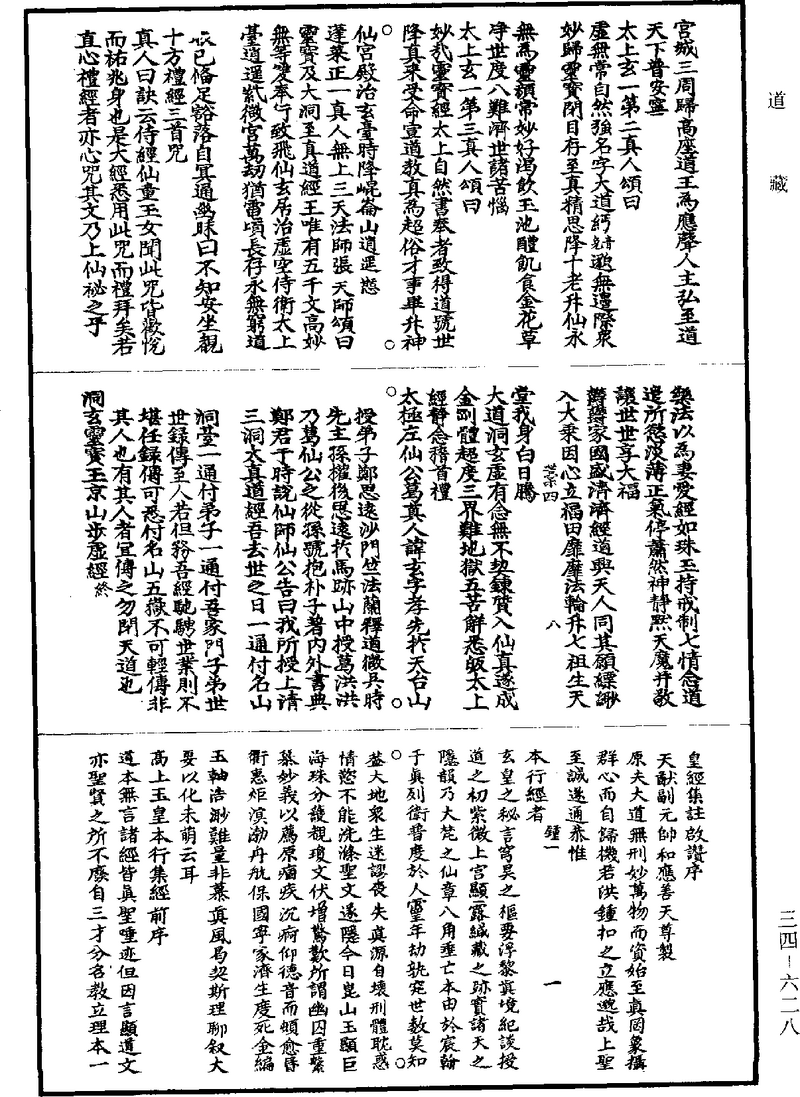 道藏
宮城三周歸高座道王爲應聲人主弘至道
天下普安寧
太上玄一第二真人頌曰
虛無常自然強名字大道紛邈無邊際衆
妙歸靈寶閉目存至真精思降十老升仙永
無爲靈顏常妙好渴飲玉池醴飢食金花草
淨世度八難濟世諸苦惱
太上玄一第三真人頌曰
妙哉靈寶經太上自然書奉者致得道號世
降真來受命宣道教真爲超俗才事畢升神
仙宮殿治玄臺時降崐崙山逍遥憩
蓬萊正一真人無上三天法師張天師頌曰
靈寶及大洞至真道經王唯有五千文高妙
無等雙奉行致飛仙玄居治虛空侍衛太上
臺逍遥紫微宮萬劫猶電頃長存永無窮道
成已備足豁落自冥通幽昧曰不知安坐觀
十方禮經三首咒
真人曰訣云侍經仙童玉女聞此咒皆歡悅
而祐兆身也是大經悉用此咒而禮拜矣若
直心禮經者亦心咒其文乃上仙祕之乎
樂法以爲妻愛經如珠玉持戒制七情念道
遣所慾淡薄正氣停蕭然神靜默天魔并敬
護世世享大福
鬱鬱家國盛濟濟經道興天人同其願縹緲
入大乘因心立福田靡靡法輪升七祖生天
堂我身白日騰
大道洞玄虛有念無不契鍊質入仙真遂成
金剛體超度三界難地獄五苦解悉皈太上
經靜念稽首禮
太極左仙公葛真人諱玄字孝先於天台山
授弟子鄭思遠沙門竺法蘭釋道微吳時
先主孫權後思遠於馬跡山中授葛洪洪
乃葛仙公之從孫號抱朴子著內外書典
鄭君于時說仙師仙公告曰我所授上清
三洞太真道經吾去世之日一通付名山
洞臺一通付弟子一通付吾家門子弟世
世錄傳至人若但務吾經馳騁世業則不
堪任錄傳可悉付名山五嶽不可輕傳非
其人也有其人者宣傳之勿閉天道也
洞玄靈寶玉京山步虛經終
八
皇經集註啟讚序
天猷副元帥和應善天尊製
原夫大道無刑妙萬物而資始至真罔象攝
群心而自歸機若洪鍾扣之立應邈哉上聖
至誠遂通恭惟
本行經者
鍾一
一
玄皇之秘言穹昊之樞要浮黎真境紀談授
道之初紫微上宮顯露緘藏之跡實諸天之
隱韻乃大梵之仙章八角垂亡本由於宸翰
于真列衛普度於人靈年劫孰窺世數莫知
蓋大地衆生迷謬喪失真源自壞刑體耽惑
情慾不能洗滌聖文遂隱今日崑山玉顯巨
海珠分獲覩瓊文伏增驚歎所謂幽囚重繫
慕妙義以薦原痼疾沉痾仰德音而頓愈昏
衢惠炬溟渤丹航保國寧家濟生度死金編
玉軸浩渺難量非慕真風曷契斯理聊叙大
要以化未萌云耳
高上玉皇本行集經前序
道本無言諸經皆真聖唾迹但因言顯道文
亦聖賢之所不廢自三才分名教立理本一
三四—六二八